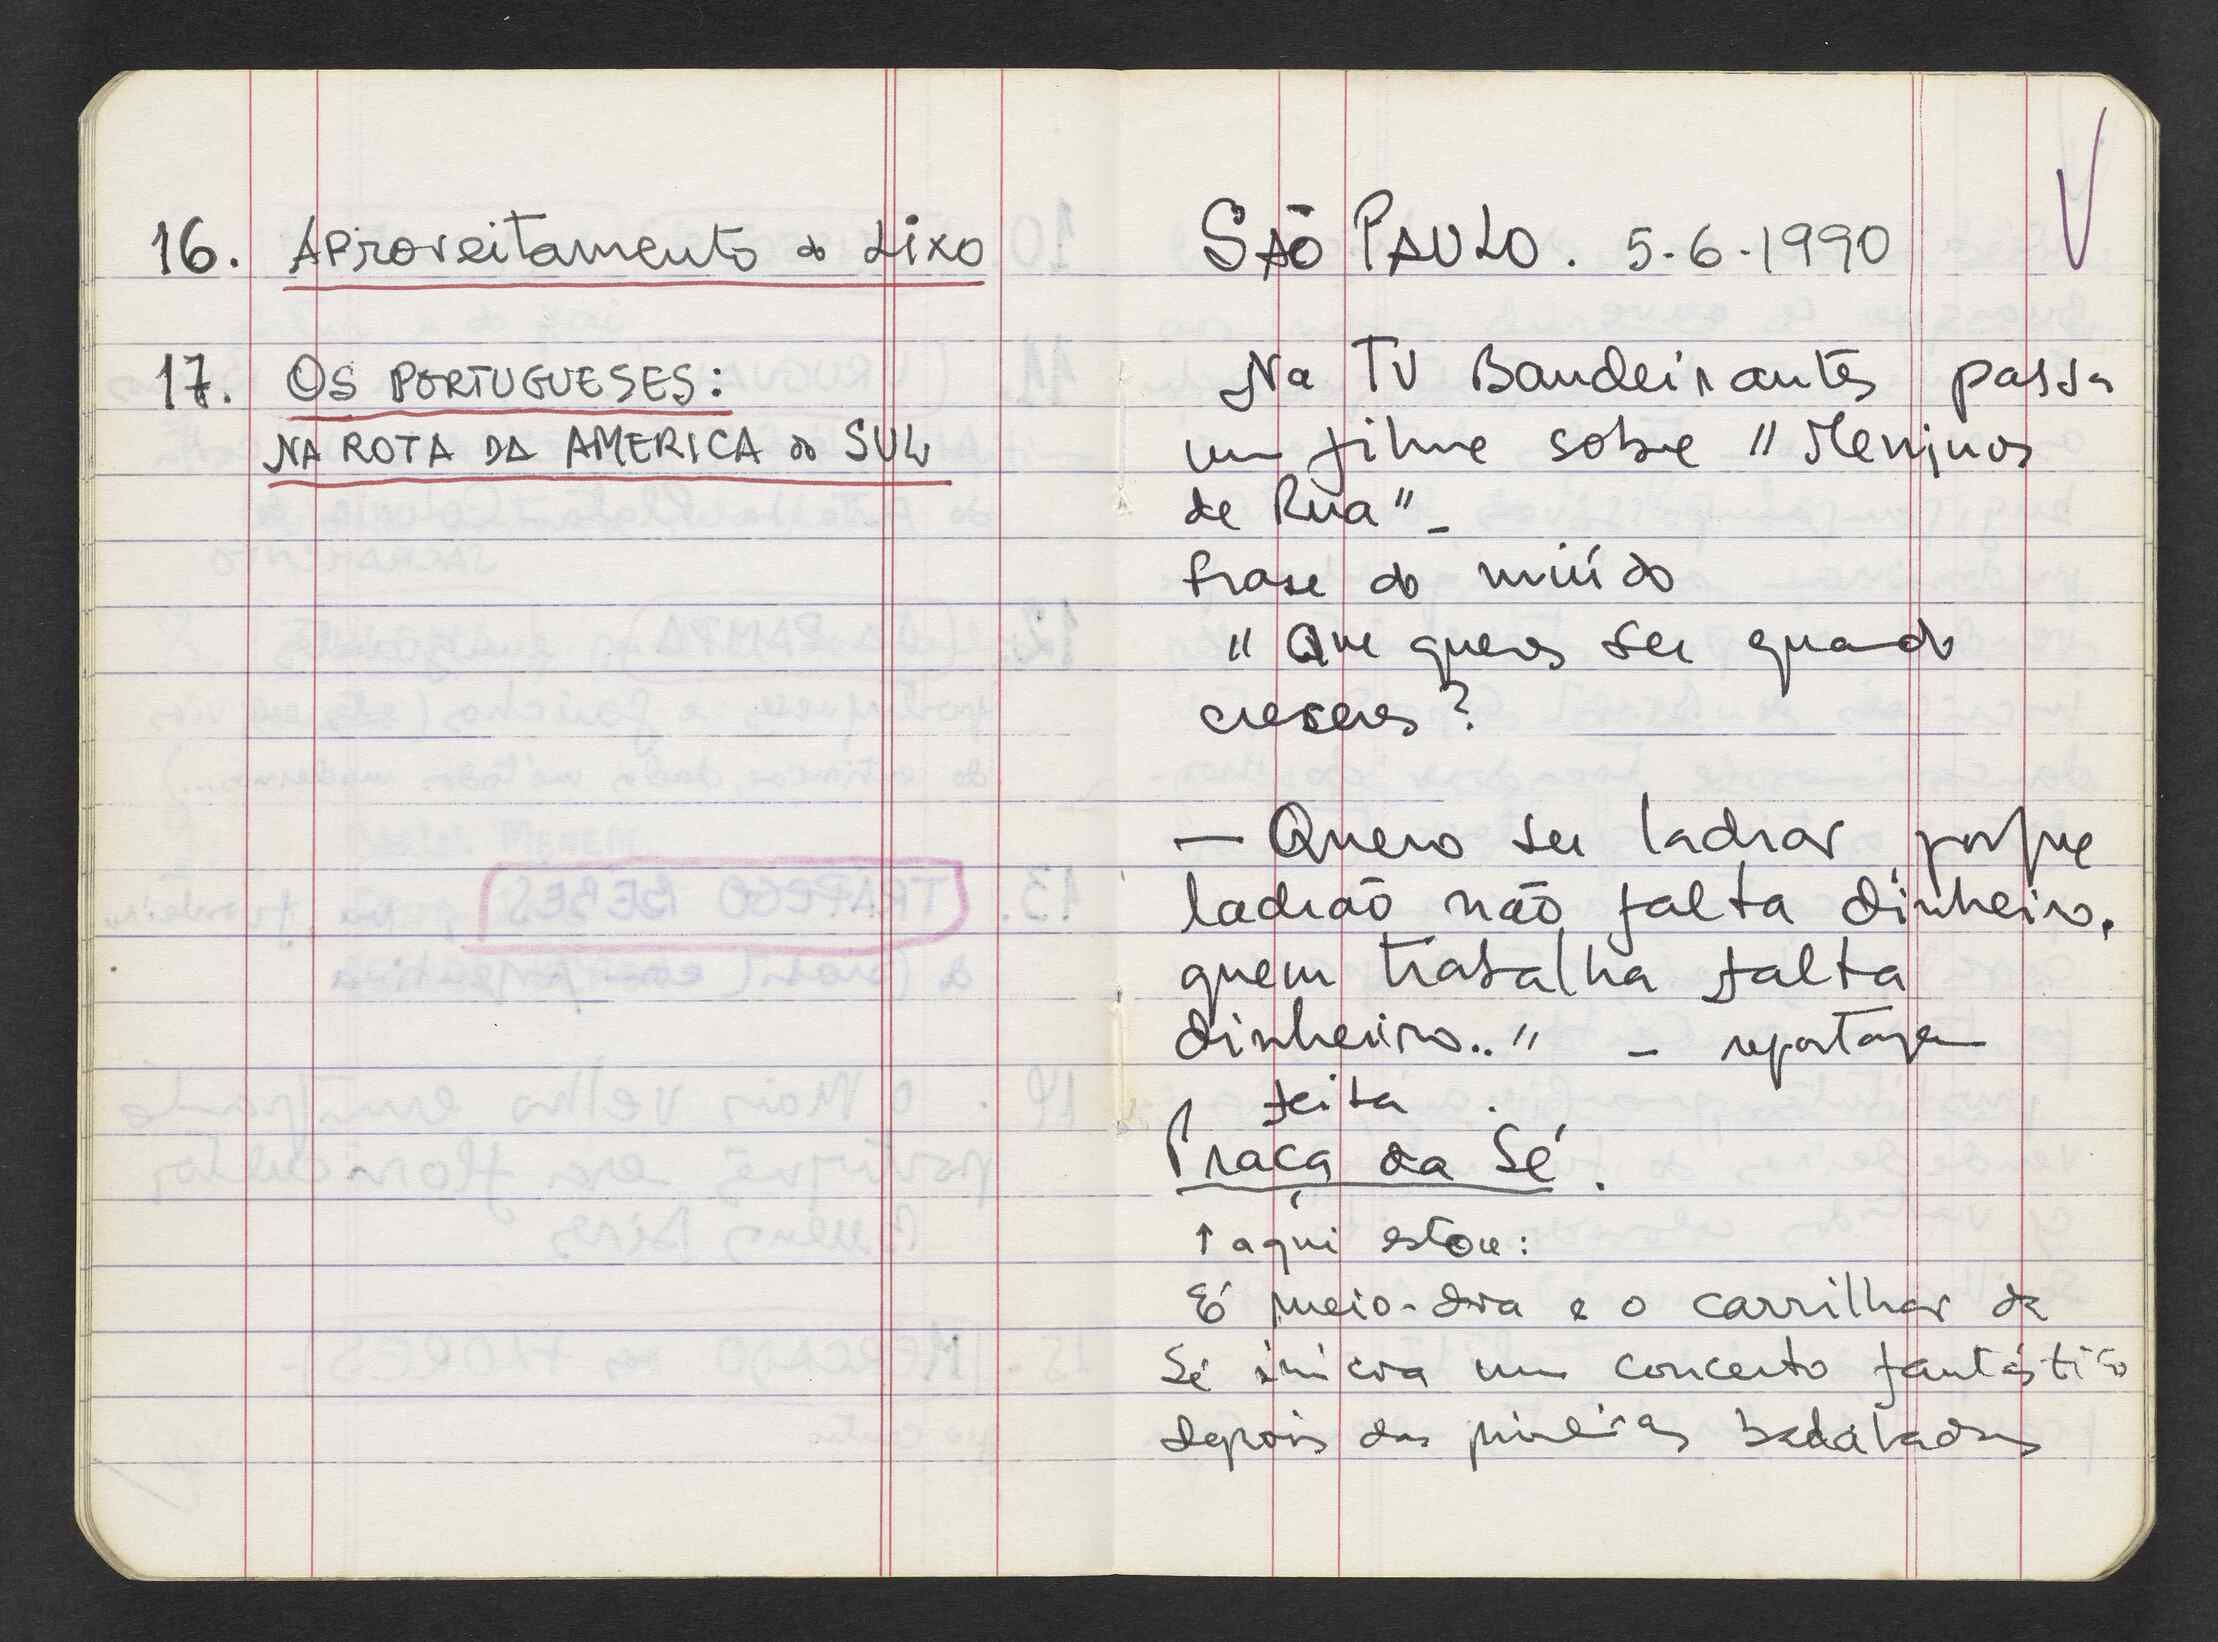 16. Aproveitamento do Lixo
17. Os PORTUGUESES:
NA ROTA DA AMERICA do SUL
SÃO PAULO. 5-6-1990
Na TV Bandeirantes passa
um filme sobre "Meninos
de Rua" -
frase do miúdo
" Que queres ser quando
creseres?
— Quero ser ladrar, porque
ladrão não falta dinheiro.
quem trabalha falta
dinheiro.." - reportagem
feita .
Praça da Sé.
↑ aqui estou:
É meio-dia e o carrilhar da
Sé inicia um concerto fantástico
depois das primeiras badaladas